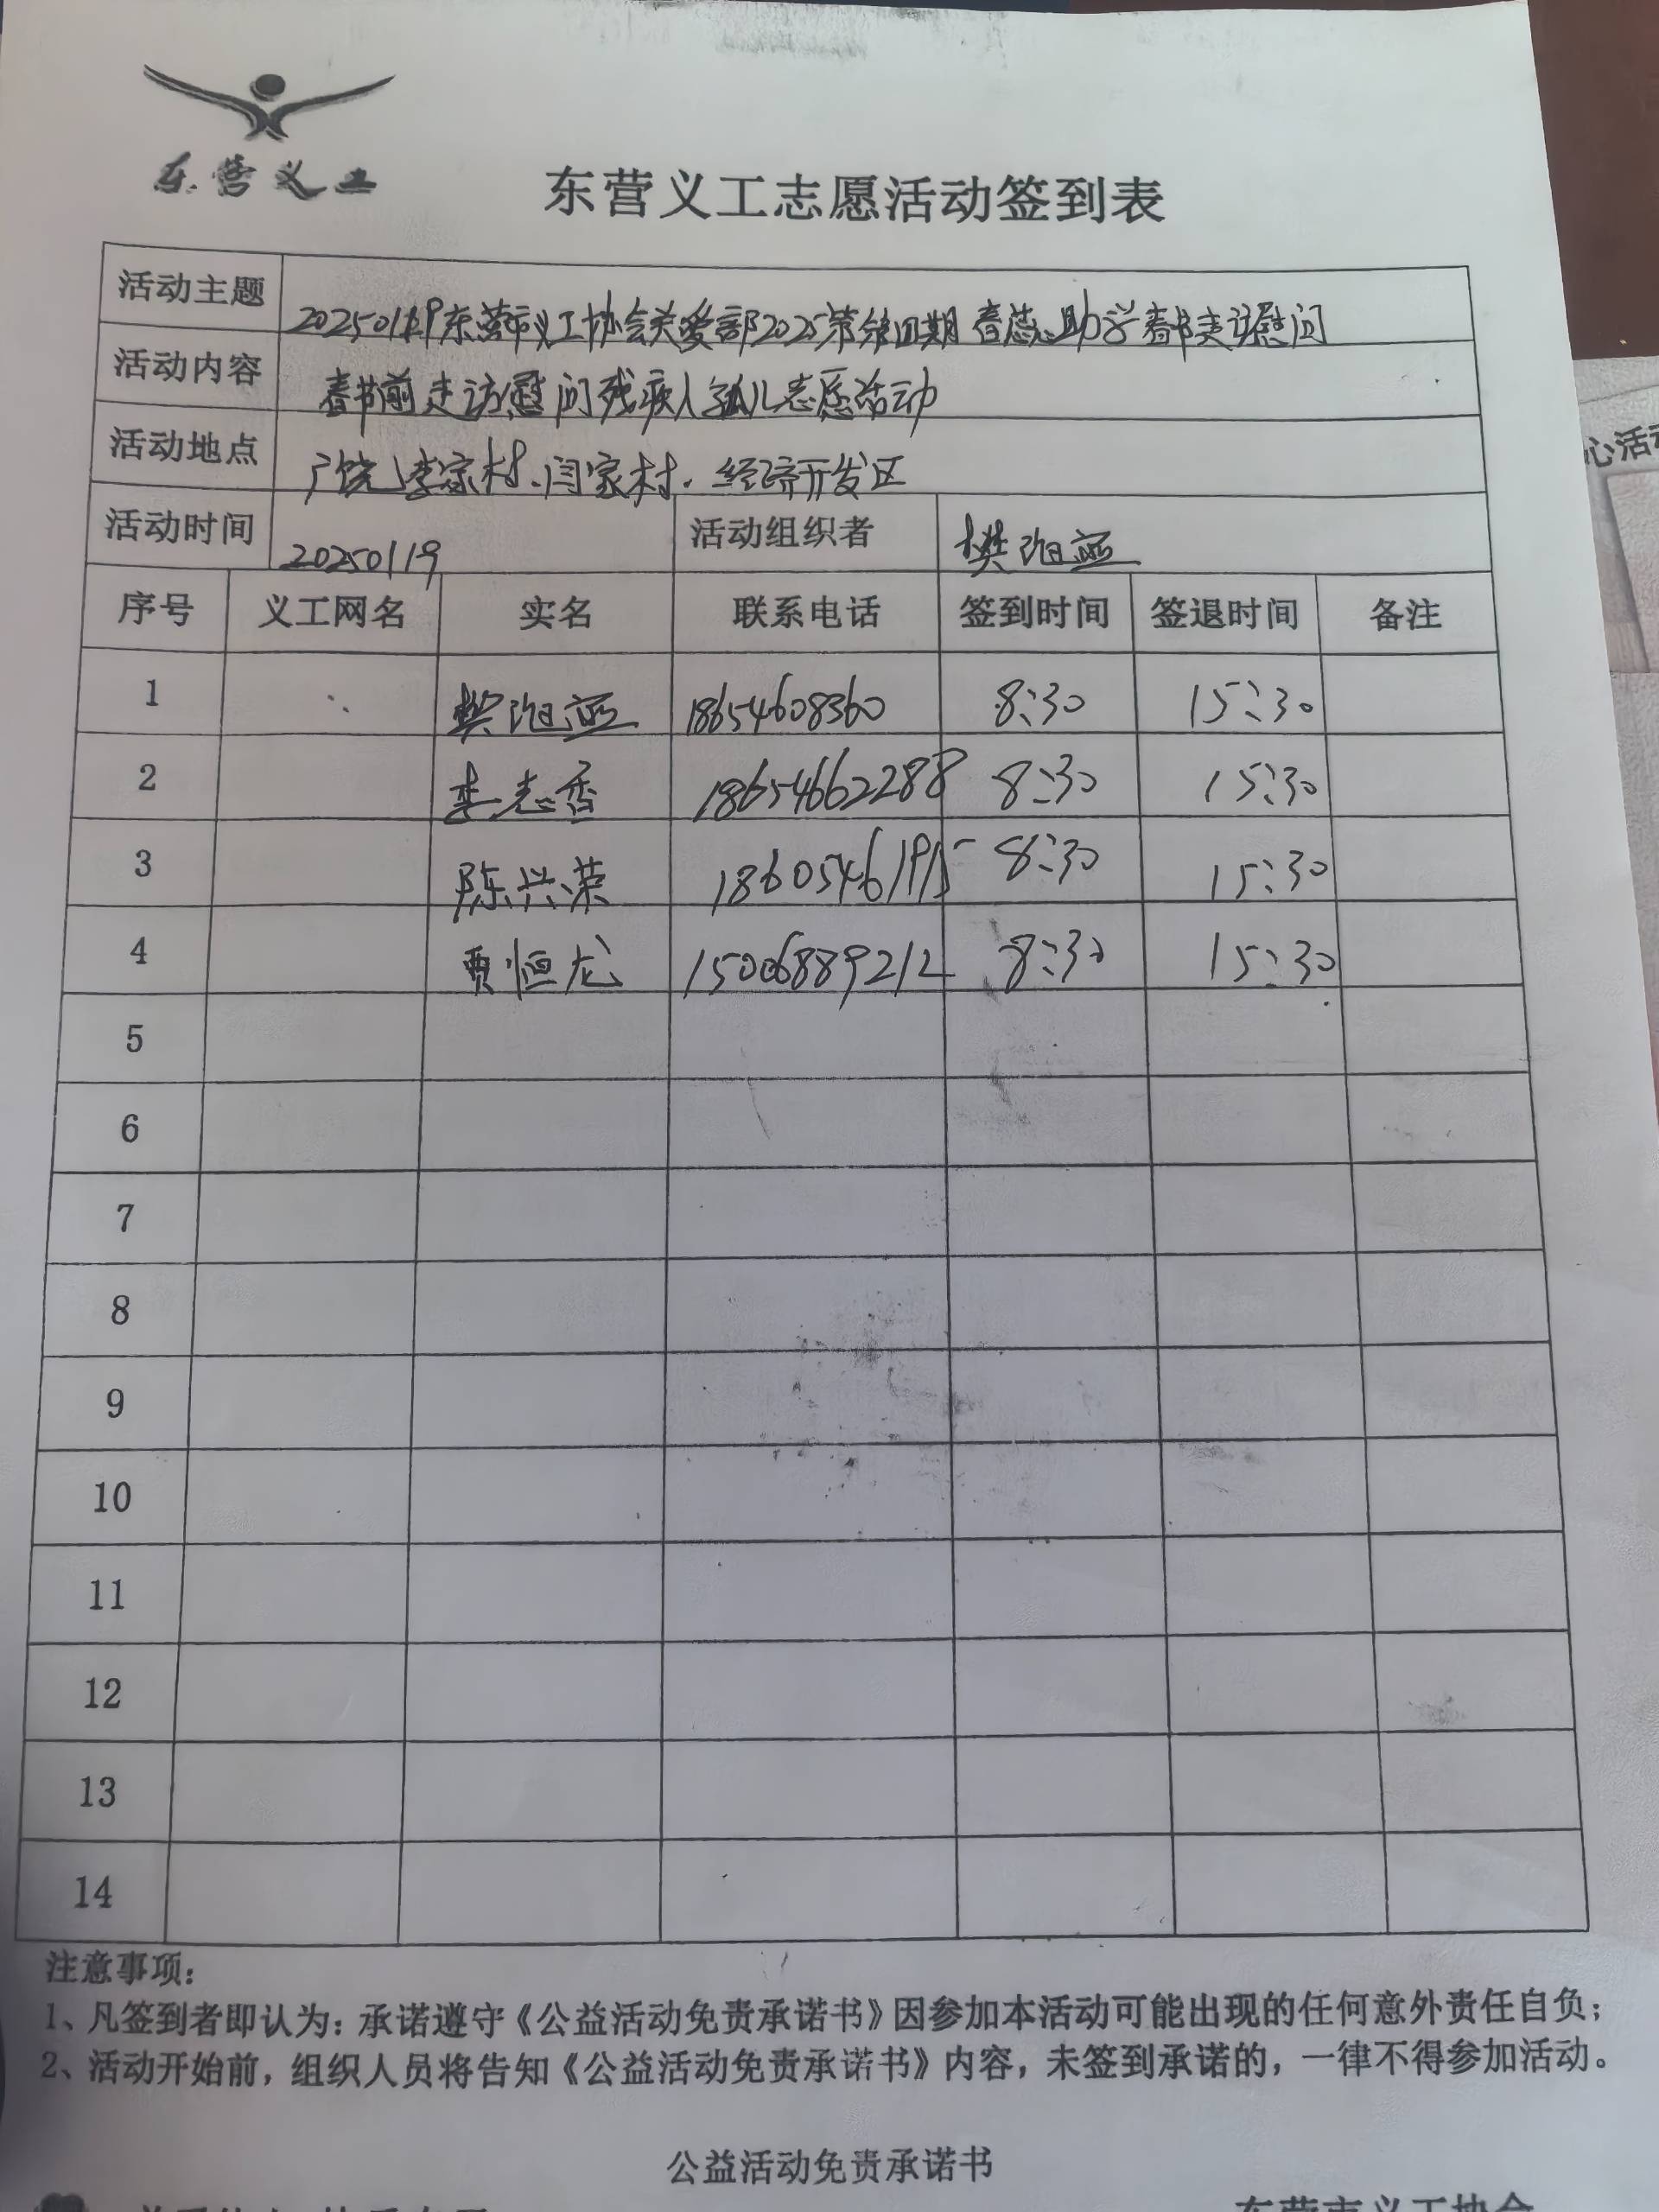 东营义工
东营义工志愿活动签到表
活动主题 20250119东营市义工协会关爱部2025第 第四期 春蕊助学春节走访慰问
活动内容 春节前走访慰问残疾人孤儿志愿活动
活动地点 广饶 李家村、闫家村、经济开发区
活动时间 20250119 活动组织者 樊
序号 义工网名 实名 联系电话 签到时间 签退时间 备注
1 樊 18654608360 8:30 15:30
2 李志香 18654662288 8:30 15:30
3 陈兴荣 18605461915 8:30 15:30
4 贾恒龙 15006889212 8:30 15:30
5
6
7
8
9
10
11
12
13
14
注意事项:
1、凡签到者即认为:承诺遵守《公益活动免责承诺书》因参加本活动可能出现的任何意外责任自负;
2、活动开始前,组织人员将告知《公益活动免责承诺书》内容,未签到承诺的,一律不得参加活动。
公益活动免责承诺书
东营市义工协会
心活动